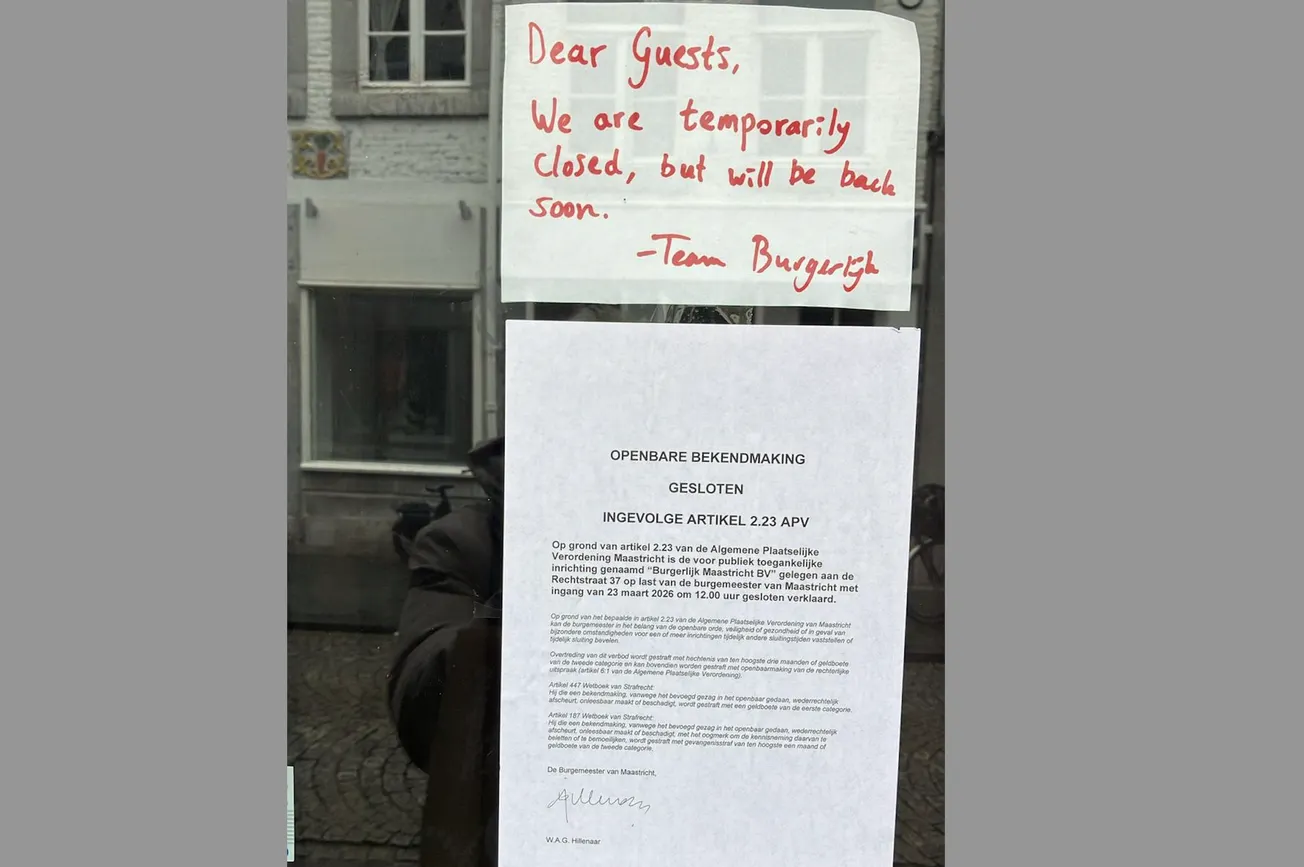 Dear Guests,
We are temporarily
closed, but will be back
soon.
-Team Burgerlijk
OPENBARE BEKENDMAKING
GESLOTEN
INGEVOLGE ARTIKEL 2.23 APV
Op grond van artikel 2.23 van de Algemene Plaatselijke
Verordening Maastricht is de voor publiek toegankelijke
inrichting genaamd “Burgerlijk Maastricht BV” gelegen aan de
Rechtstraat 37 op last van de burgemeester van Maastricht met
ingang van 23 maart 2026 om 12.00 uur gesloten verklaard.
Op grond van het bepaalde in artikel 2.23 van de Algemene Plaatselijke Verordening van Maastricht
kan de burgemeester in het belang van de openbare orde, veiligheid of gezondheid of in geval van
bijzondere omstandigheden voor een of meer inrichtingen tijdelijk andere sluitingstijden vaststellen of
tijdelijk sluiting bevelen.
Overtreding van dit verbod wordt gestraft met hechtenis van ten hoogste drie maanden of geldboete
van de tweede categorie en kan bovendien worden gestraft met openbaarmaking van de rechterlijke
uitspraak (artikel 6:1 van de Algemene Plaatselijke Verordening).
Artikel 447 Wetboek van Strafrecht:
Hij die een bekendmaking, vanwege het bevoegd gezag in het openbaar gedaan, wederrechtelijk
afscheurt, onleesbaar maakt of beschadigt, wordt gestraft met een geldboete van de eerste categorie.
Artikel 187 Wetboek van Strafrecht:
Hij die een bekendmaking, vanwege het bevoegd gezag in het openbaar gedaan, wederrechtelijk
afscheurt, onleesbaar maakt of beschadigt, met het oogmerk om de kennisneming daarvan te
beletten of te bemoeilijken, wordt gestraft met gevangenisstraf van ten hoogste een maand of
geldboete van de tweede categorie.
De Burgemeester van Maastricht,
W.A.G. Hillenaar